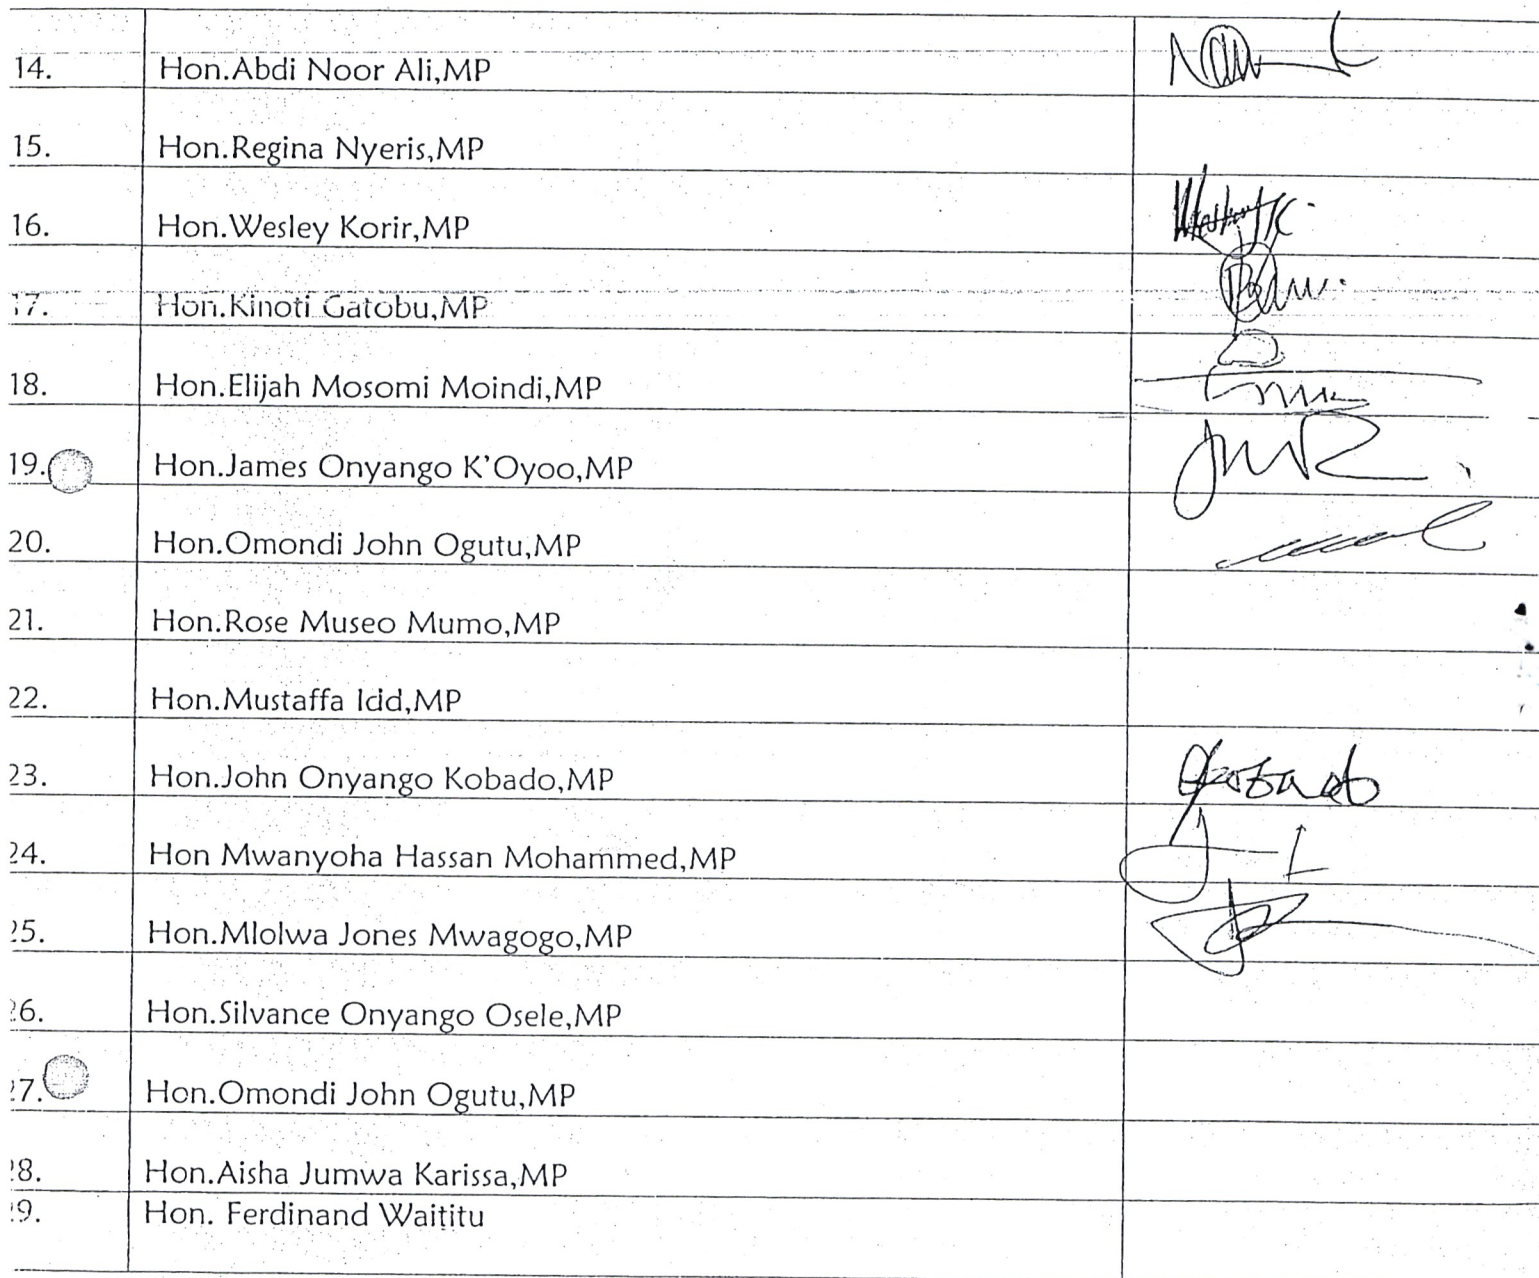 14. Hon.Abdi Noor Ali,MP
15. Hon.Regina Nyeris,MP
16. Hon.Wesley Korir,MP
17. Hon.Kinoti Gatobu,MP
18. Hon.Elijah Mosomi Moindi,MP
19. Hon.James Onyango K'Oyoo,MP
20. Hon.Omondi John Ogutu,MP
21. Hon.Rose Museo Mumo,MP
22. Hon.Mustaffa Idd,MP
23. Hon.John Onyango Kobado,MP
24. Hon Mwanyoha Hassan Mohammed,MP
25. Hon.Mlolwa Jones Mwagogo,MP
26. Hon.Silvance Onyango Osele,MP
27. Hon.Omondi John Ogutu,MP
28. Hon.Aisha Jumwa Karissa,MP
29. Hon. Ferdinand Waititu